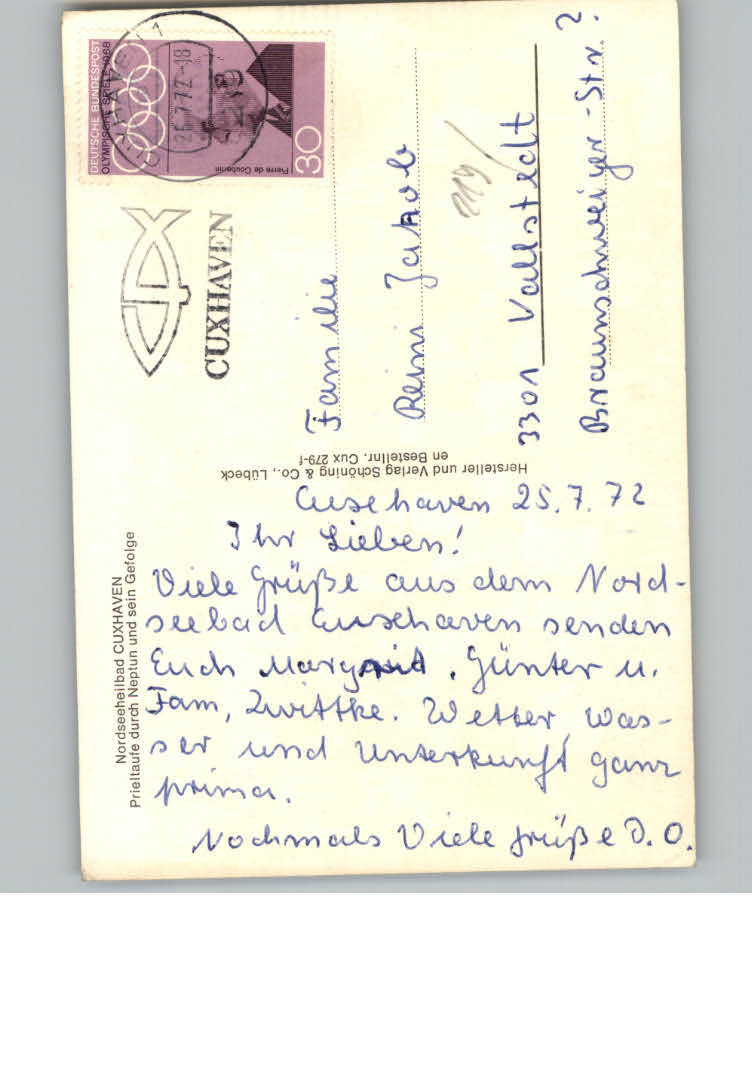 Nordseeheilbad CUXHAVEN
Prieltaufe durch Neptun und sein Gefolge
Cuxhaven 25.7.72
Ihr Lieben!
Viele Grüße aus dem Nord-
seebad Cuxhaven senden
Euch Margrit, Günter u.
Fam, Zwittke. Wetter, Was-
ser und Unterkunft ganz
prima.
Nochmals Viele Grüße D. O.
Hersteller und Verlag Schöning & Co., Lübeck
en Bestellnr. Cux 279-f
DEUTSCHE BUNDESPOST
OLYMPISCHE SPIELE 1968
Pierre de Coubertin
30
CUXHAVEN 1
25.7.72-18
CUXHAVEN
Familie
Reini Jakob
3301 Vallstedt
Braunschweiger-Str. ?